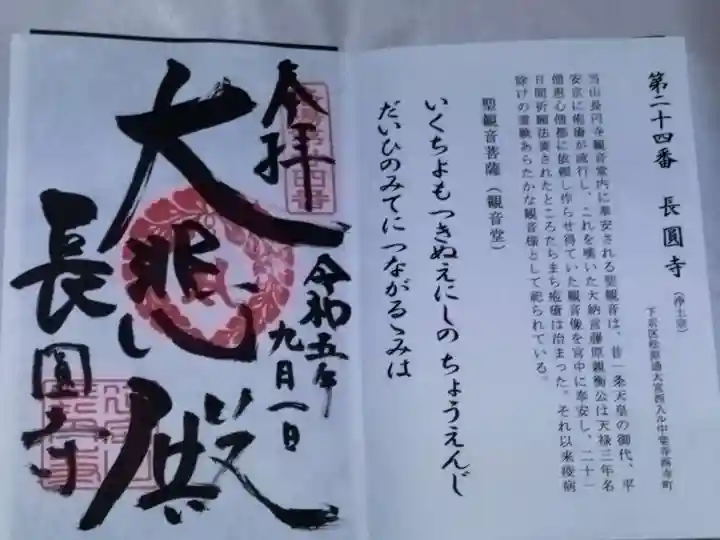 第二十四番　長圓寺
（浄土宗）
下京区松原通大宮西入ル中堂寺西寺町
当山長円寺観音堂内に奉安される聖観音は、昔一条天皇の御代、平
安京に疱瘡が流行し、これを嘆いた大納言藤原親衡公は天禄三年名
僧恵心僧都に依頼し作らせ得ていた観音像を宮中に奉安し、二十一
日間祈願法要されたところたちまち疱瘡は治まった。それ以来疫病
除けの霊験あらたかな観音様として祀られている。
聖観音菩薩（観音堂）
いくちよもつきぬえにしの ちょうえんじ
だいひのみてに つながるゝみは
奉拝
令和五年
九月一日
大悲殿
長圓寺